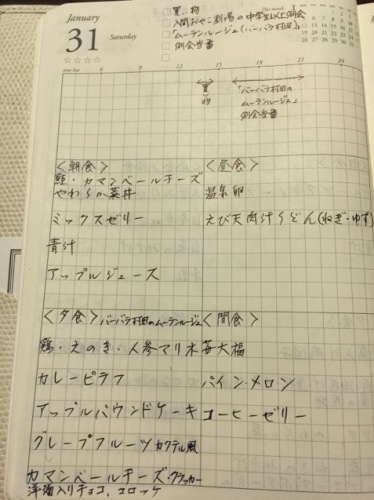 January
31
Saturday
買い物
入間おやこ劇場の中学生以上例会
「ムーランルージュ(バーバラ村田)」
例会当番
12
15
18
21
24
買い物
「バーバラ村田の
ムーランルージュ」
例会当番
<朝食>
鮭・カマンベールチーズ
やわらか菜丼
ミックスゼリー
青汁
アップルジュース
<昼食>
温泉卵
えび天肉汁うどん(ねぎ・ゆず)
<夕食>バーバラ村田のムーランルージュ
鶏・えのき・人参マリネ
カレーピラフ
アップルパウンドケーキ
グレープフルーツカクテル風
カマンベールチーズ・クラッカー
洋酒入りチョコ、コロッケ
<間食>
苺大福
パイン・メロン
コーヒーゼリー